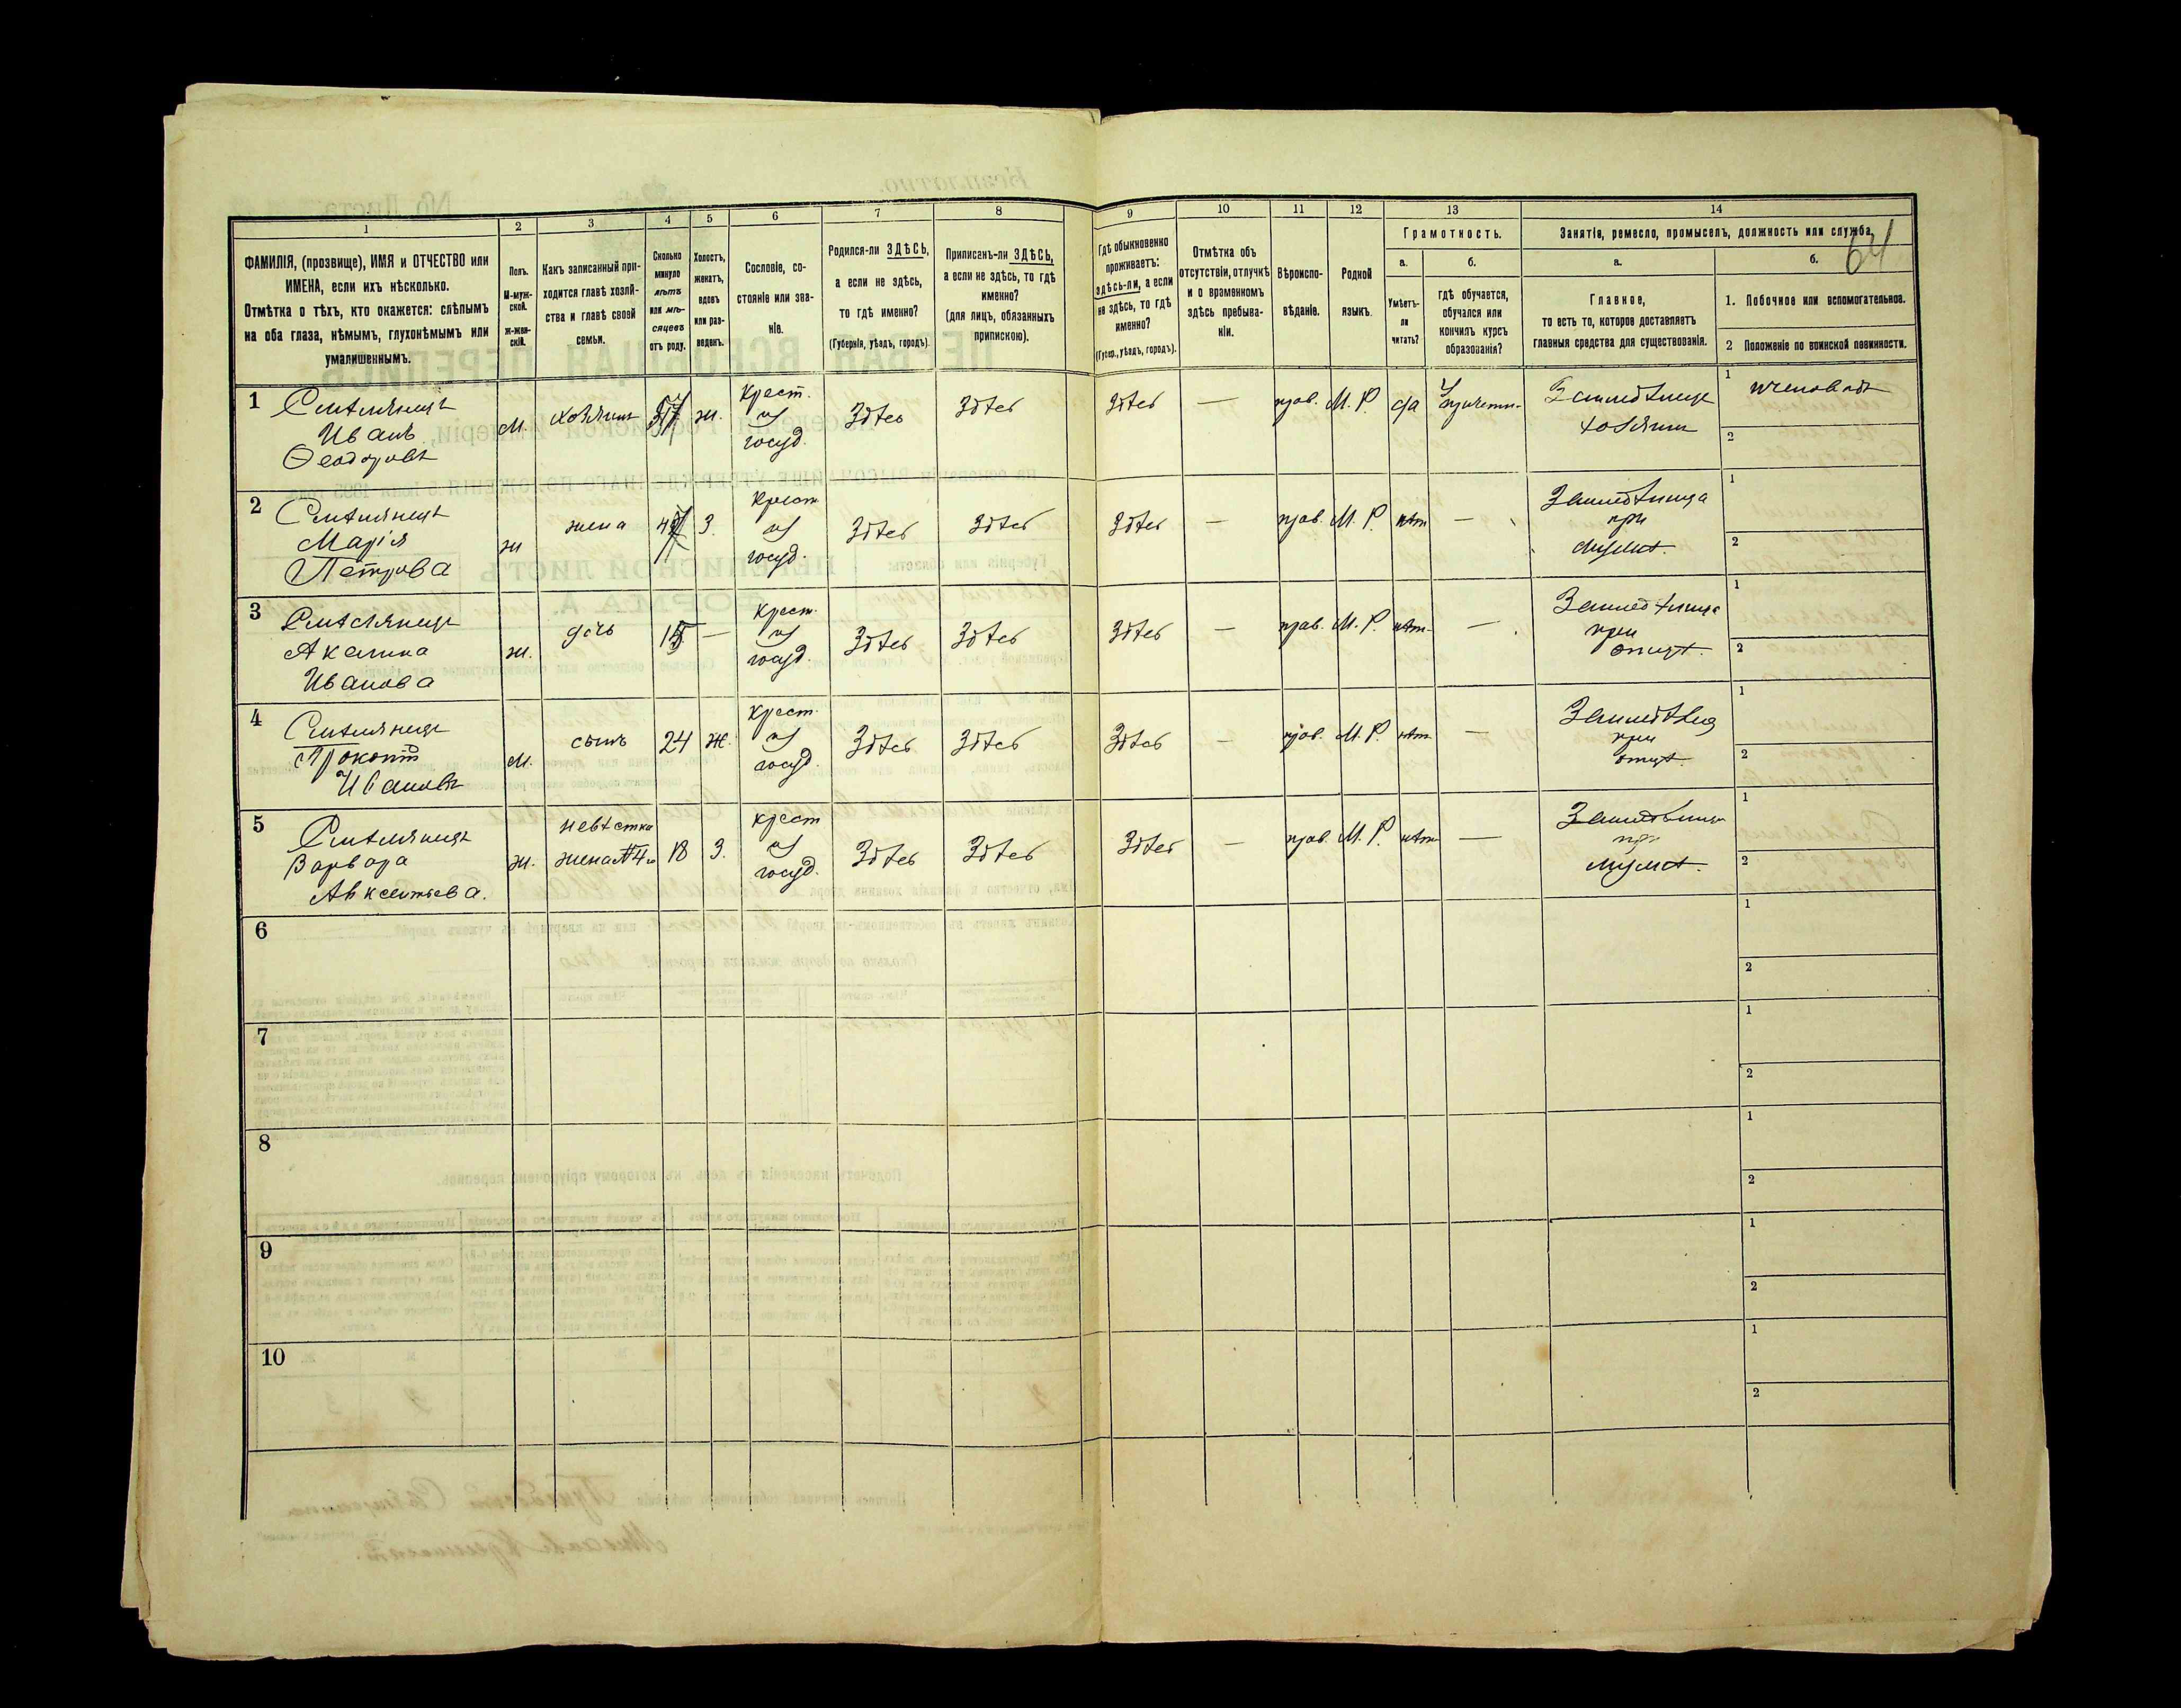 64
1
2
3
4
5
6
7
8
9
10
11
12
13
14
ФАМИЛІЯ, (прозвище), ИМЯ и ОТЧЕСТВО или
ИМЕНА, если ихъ нѣсколько.
Отмѣтка о тѣхъ, кто окажется: слѣпымъ
на оба глаза, нѣмымъ, глухонѣмымъ или
умалишеннымъ.
Полъ.
М-муж-
ской.
Ж-жен-
скій.
Какъ записанный при-
ходится главѣ хозяй-
ства и главѣ своей
семьи.
Сколько
минуло
лѣтъ
или мѣ-
сяцевъ
отъ роду.
Холостъ,
женатъ,
вдовъ
или раз-
веденъ.
Сословіе, со-
стояніе или зва-
ніе.
Родился-ли ЗДѢСЬ,
а если не здѣсь,
то гдѣ именно?
(Губернія, уѣздъ, городъ).
Приписанъ-ли ЗДѢСЬ,
а если не здѣсь, то гдѣ
именно?
(для лицъ, обязанныхъ
припискою).
Гдѣ обыкновенно
проживаетъ:
здѣсь-ли, а если
не здѣсь, то гдѣ
именно?
(Губер., уѣздъ, городъ).
Отмѣтка объ
отсутствіи, отлучкѣ
и о временномъ
здѣсь пребыва-
ніи.
Вѣроиспо-
вѣданіе.
Родной
языкъ.
Грамотность.
а.
Умѣетъ-
ли
читать?
б.
гдѣ обучается,
обучался или
кончилъ курсъ
образованія?
Занятіе, ремесло, промыселъ, должность или служба.
а.
Главное,
то есть то, которое доставляетъ
главныя средства для существованія.
б.
1. Побочное или вспомогательное.
2 Положеніе по воинской повинности.
1
Иванъ
Ѳеодоровъ
М.
хозяинъ
57
ж.
Крест.
из
госуд.
Здѣсь
Здѣсь
Здѣсь
—
прав.
М. Р.
да
Земледѣлецъ
хозяинъ
1
пчеловодъ
2
2
Марія
Петрова
ж
жена
З.
Крест
из
госуд.
Здѣсь
Здѣсь
Здѣсь
—
прав.
М. Р.
нѣт
—
Земледѣлица
при
мужѣ.
1
2
3
Акелина
Иванова
ж.
дочь
15
—
Крест.
из
госуд.
Здѣсь
Здѣсь
Здѣсь
—
прав.
М. Р.
нѣт
—
Земледѣлица
при
отцѣ.
1
2
4
Прокопій
Ивановъ
М.
сынъ
24
Ж.
Крест.
из
госуд.
Здѣсь
Здѣсь
Здѣсь
—
прав.
М. Р.
нѣт
—
при
отцѣ.
1
2
5
Варвара
Авксентьева.
ж.
невѣстка
жена №4го
18
З.
крест
из
госуд.
Здѣсь
Здѣсь
Здѣсь
—
прав.
М. Р.
нѣт
—
Земледѣлица
при
мужѣ.
1
2
6
1
2
7
1
2
8
1
2
9
1
2
10
1
2